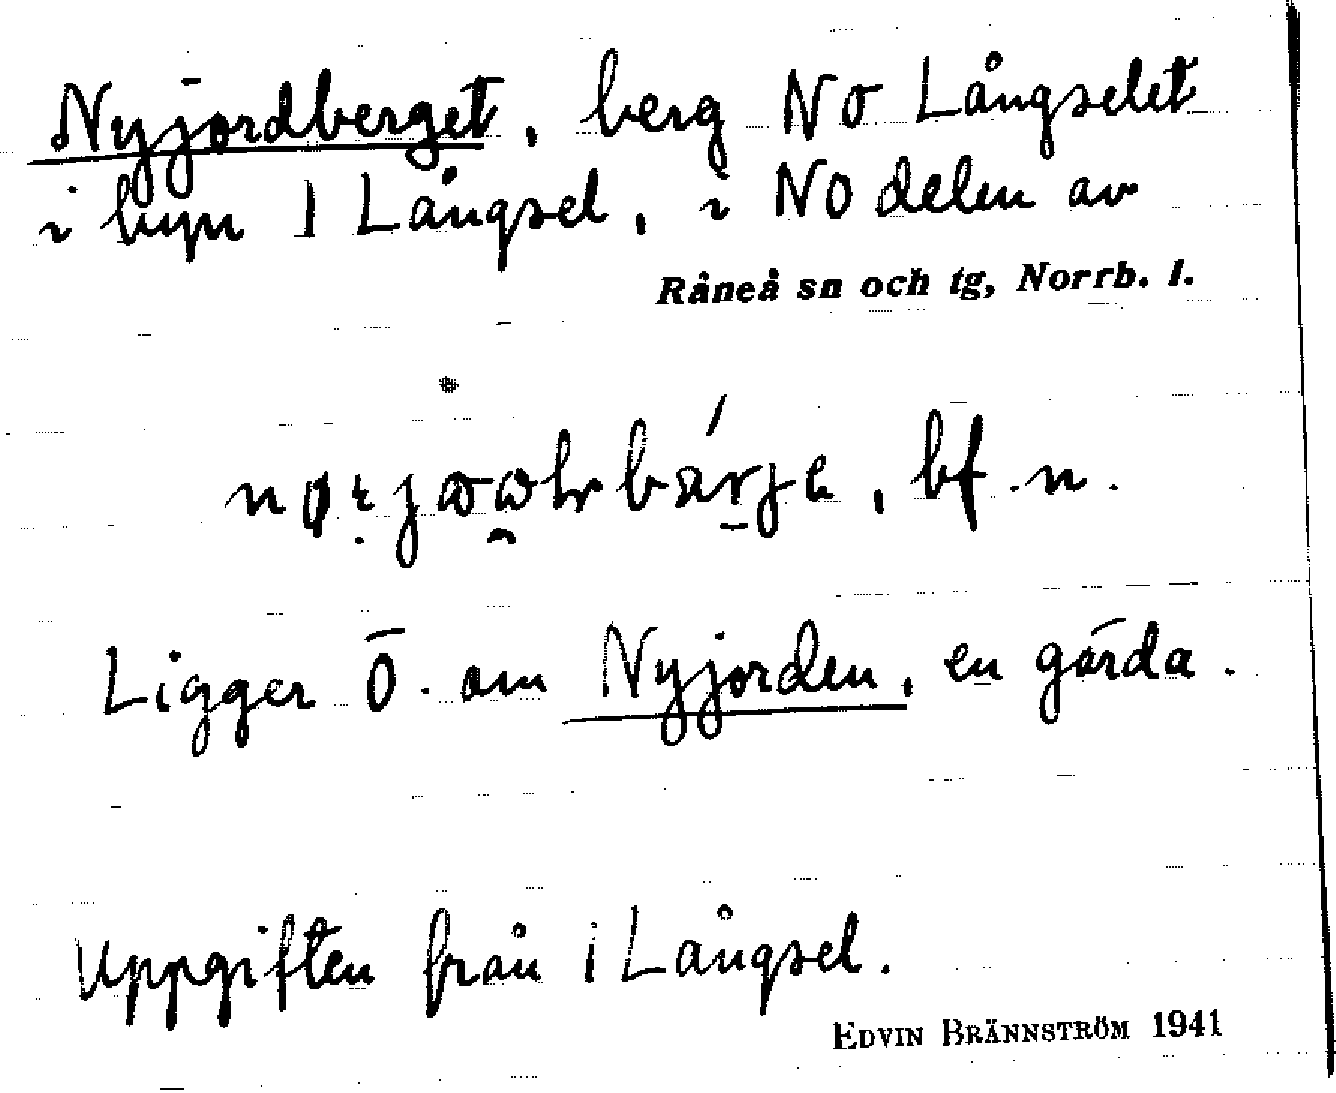 Nyjordberget, berg NO Långselet
i byn 1 Långsel, i NO delen av
Råneå sn och tg, Norrb. l.
bf. n.
Ligger Ö. om Nyjorden, en gärda.
Uppgiften från 1 Långsel.
EDVIN BRÄNNSTRÖM 1941